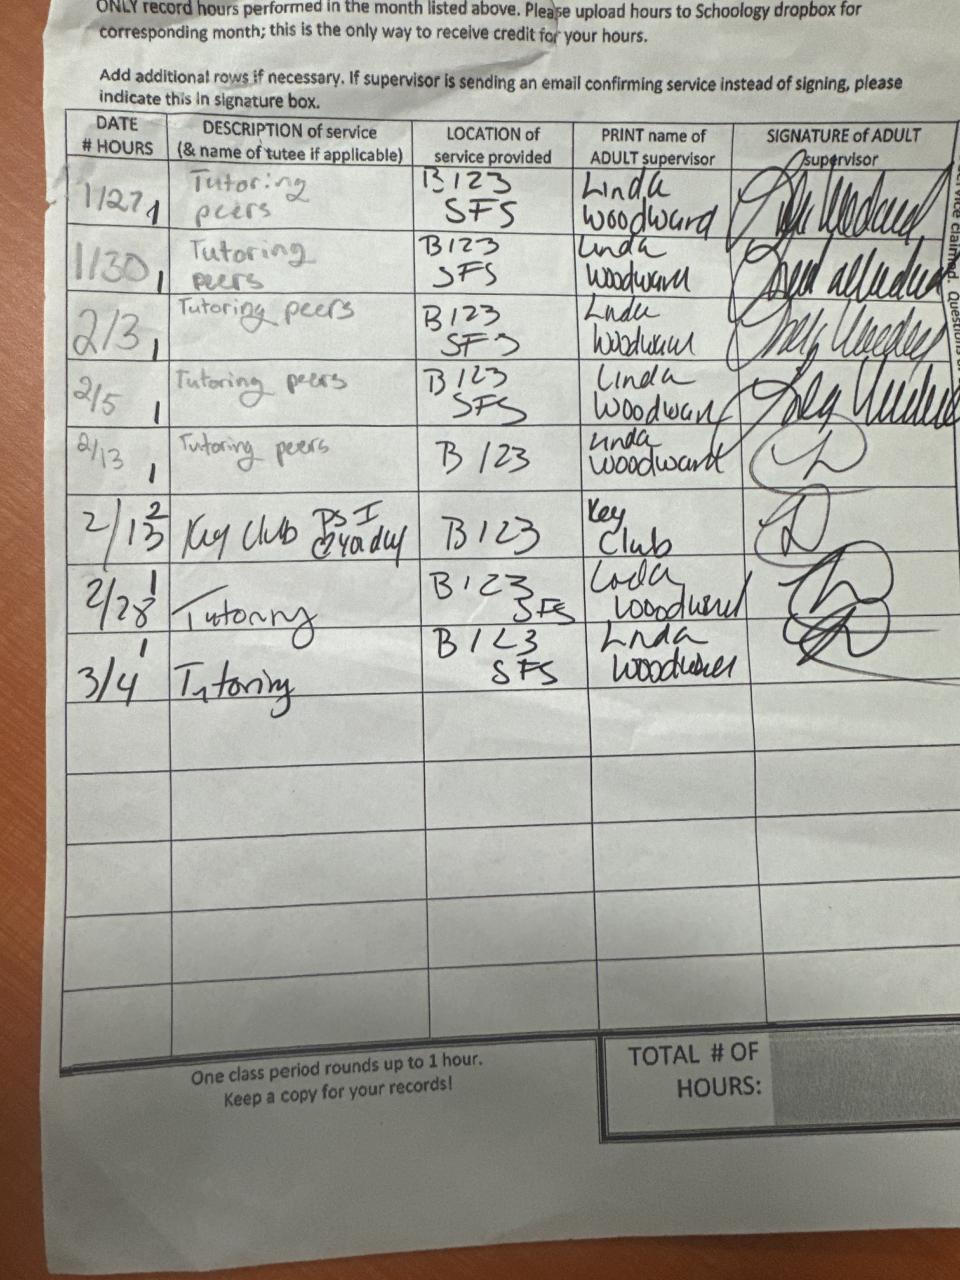 ONLY record hours performed in the month listed above. Please upload hours to Schoology dropbox for
corresponding month; this is the only way to receive credit for your hours.
Add additional rows if necessary. If supervisor is sending an email confirming service instead of signing, please
indicate this in signature box.
DATE
# HOURS
DESCRIPTION of service
(& name of tutee if applicable)
LOCATION of
service provided
PRINT name of
ADULT supervisor
SIGNATURE of ADULT
supervisor
1/27 1
Tutoring
peers
B123
SFS
Linda
Woodward
1/30 1
Tutoring
peers
B123
SFS
Linda
Woodward
2/3 1
Tutoring peers
B123
SFS
Linda
Woodward
2/5 1
Tutoring peers
B123
SFS
Linda
Woodward
2/13 1
Tutoring peers
B123
Linda
Woodward
2/13 2
Key Club PSI
B123
Key
Club
2/28 1
Tutoring
B123
SFS
Linda
Woodward
3/4 1
Tutoring
B123
SFS
Linda
Woodward
service claimed. Questions
One class period rounds up to 1 hour.
Keep a copy for your records!
TOTAL # OF
HOURS: